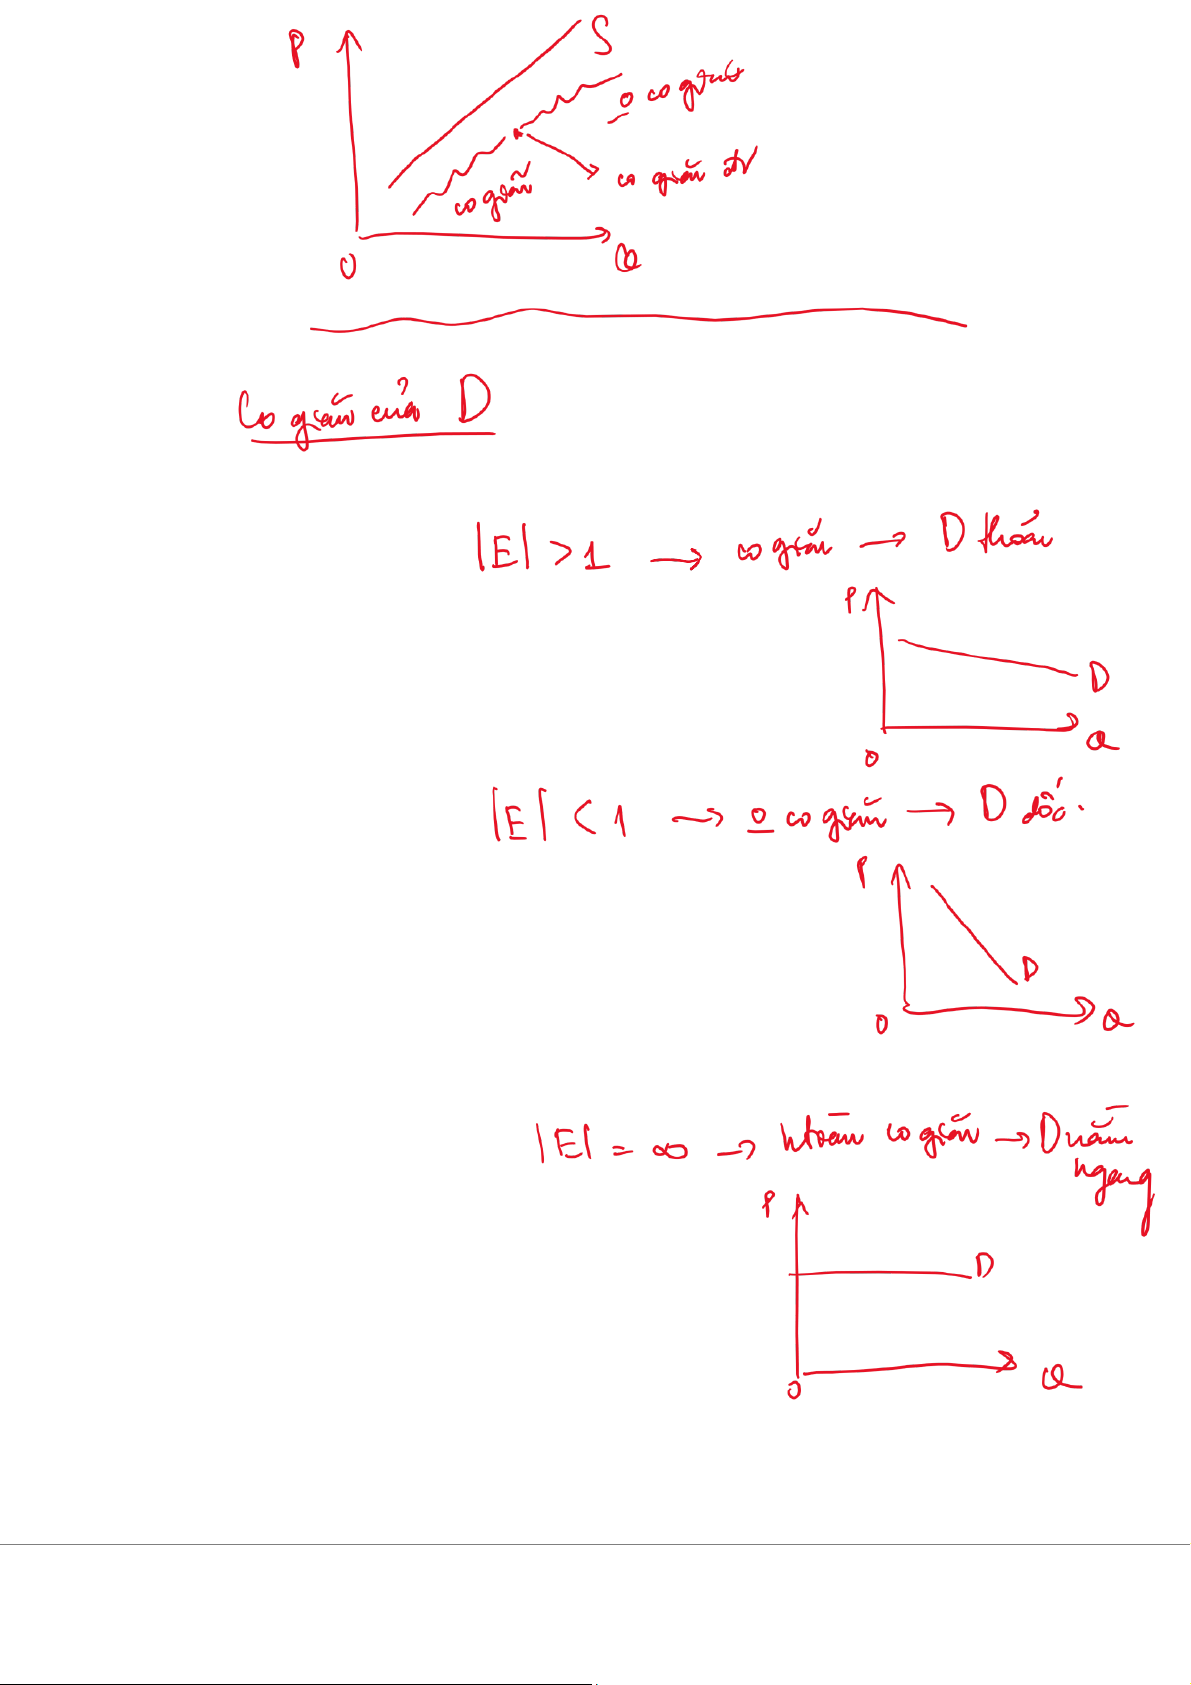 P
S
o co giãn
co giãn đv
co giãn
O
Q
Co giãn của D
|E| > 1 → co giãn → D thoải
P
D
O
Q
|E| < 1 → o co giãn → D dốc.
P
D
O
Q
|E| = ∞ → htoàn co giãn → D nằm
ngang
P
D
O
Q